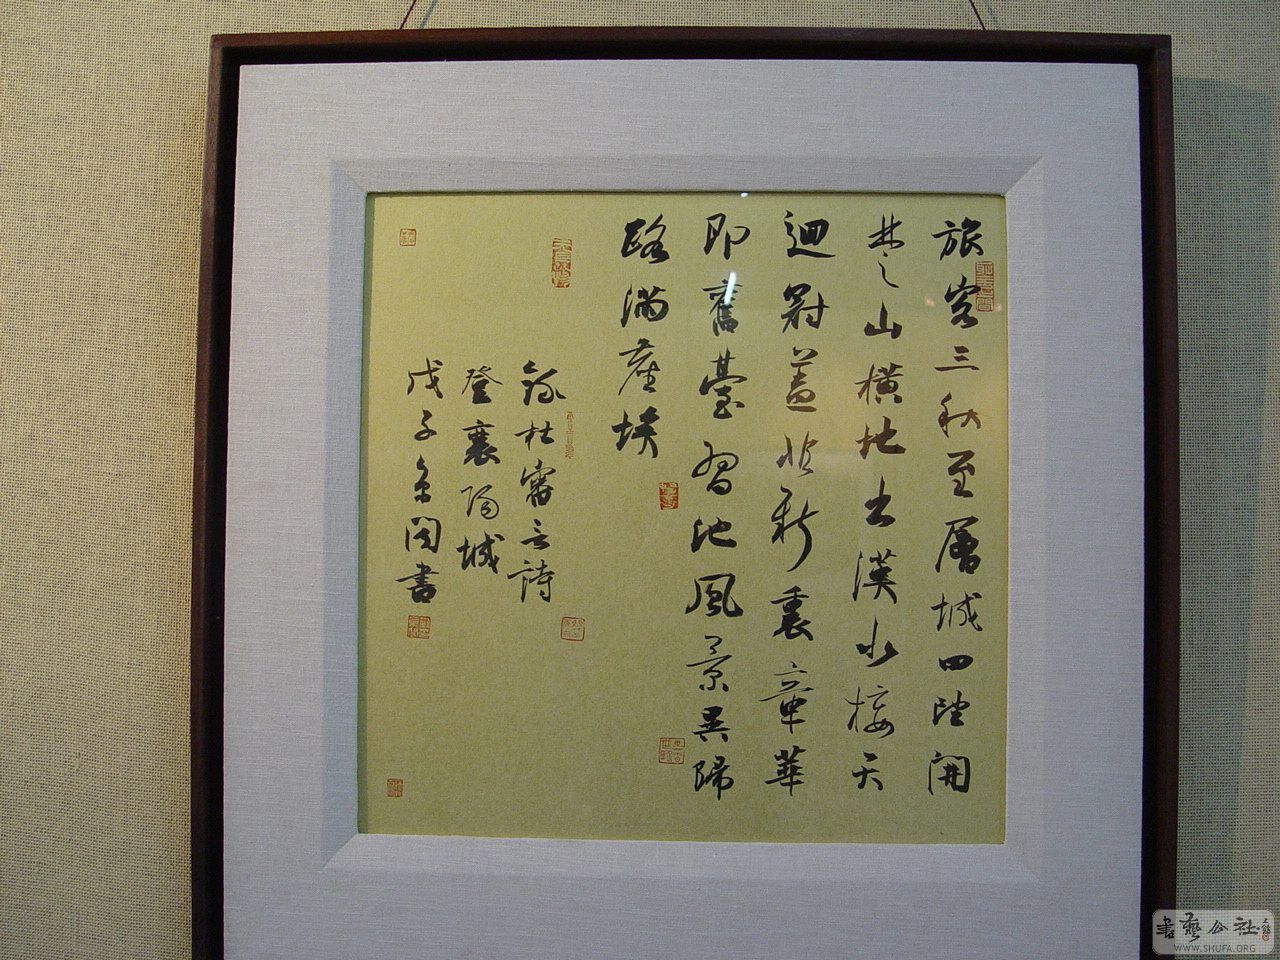 旅客三秋至層城四望開
楚山橫地出漢水接天
迴冠蓋非新裏章華
即舊臺習池風景異歸
路滿塵埃
錄杜審言詩
登襄陽城
戊子書
書藝公社
WWW.SHUFA.ORG